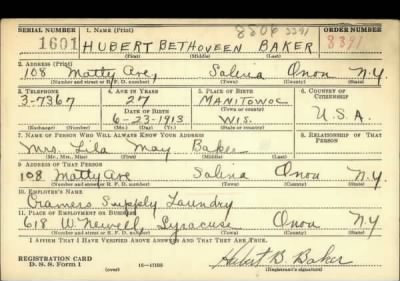 8806 3391
SERIAL NUMBER 1. NAME (Print) ORDER NUMBER
1601 HUBERT BETHOVEEN BAKER 8391
(First) (Middle) (Last)
2. ADDRESS (Print)
108 Matty Ave, Salina Onon N.Y.
(Number and street or R. F. D. number) (Town) (County) (State)
3. TELEPHONE 4. AGE IN YEARS 5. PLACE OF BIRTH 6. COUNTRY OF CITIZENSHIP
3-7367 27 MANITOWOC U.S.A.
DATE OF BIRTH (Town or county)
6-23-1913 WIS.
(Exchange) (Number) (Mo.) (Day) (Yr.) (State or country)
7. NAME OF PERSON WHO WILL ALWAYS KNOW YOUR ADDRESS 8. RELATIONSHIP OF THAT PERSON
Mrs. Lila May Baker
(Mr., Mrs., Miss) (First) (Middle) (Last)
9. ADDRESS OF THAT PERSON
108 Matty Ave Salina Onon N.Y.
(Number and street or R. F. D. number) (Town) (County) (State)
10. EMPLOYER'S NAME
Cramers Supply Laundry
11. PLACE OF EMPLOYMENT OR BUSINESS
618 W. Newell, Syracuse Onon N.Y.
(Number and street or R. F. D. number) (Town) (County) (State)
I AFFIRM THAT I HAVE VERIFIED ABOVE ANSWERS AND THAT THEY ARE TRUE.
REGISTRATION CARD
D. S. S. Form 1 (over) Hubert B. Baker
(Registrant's signature)